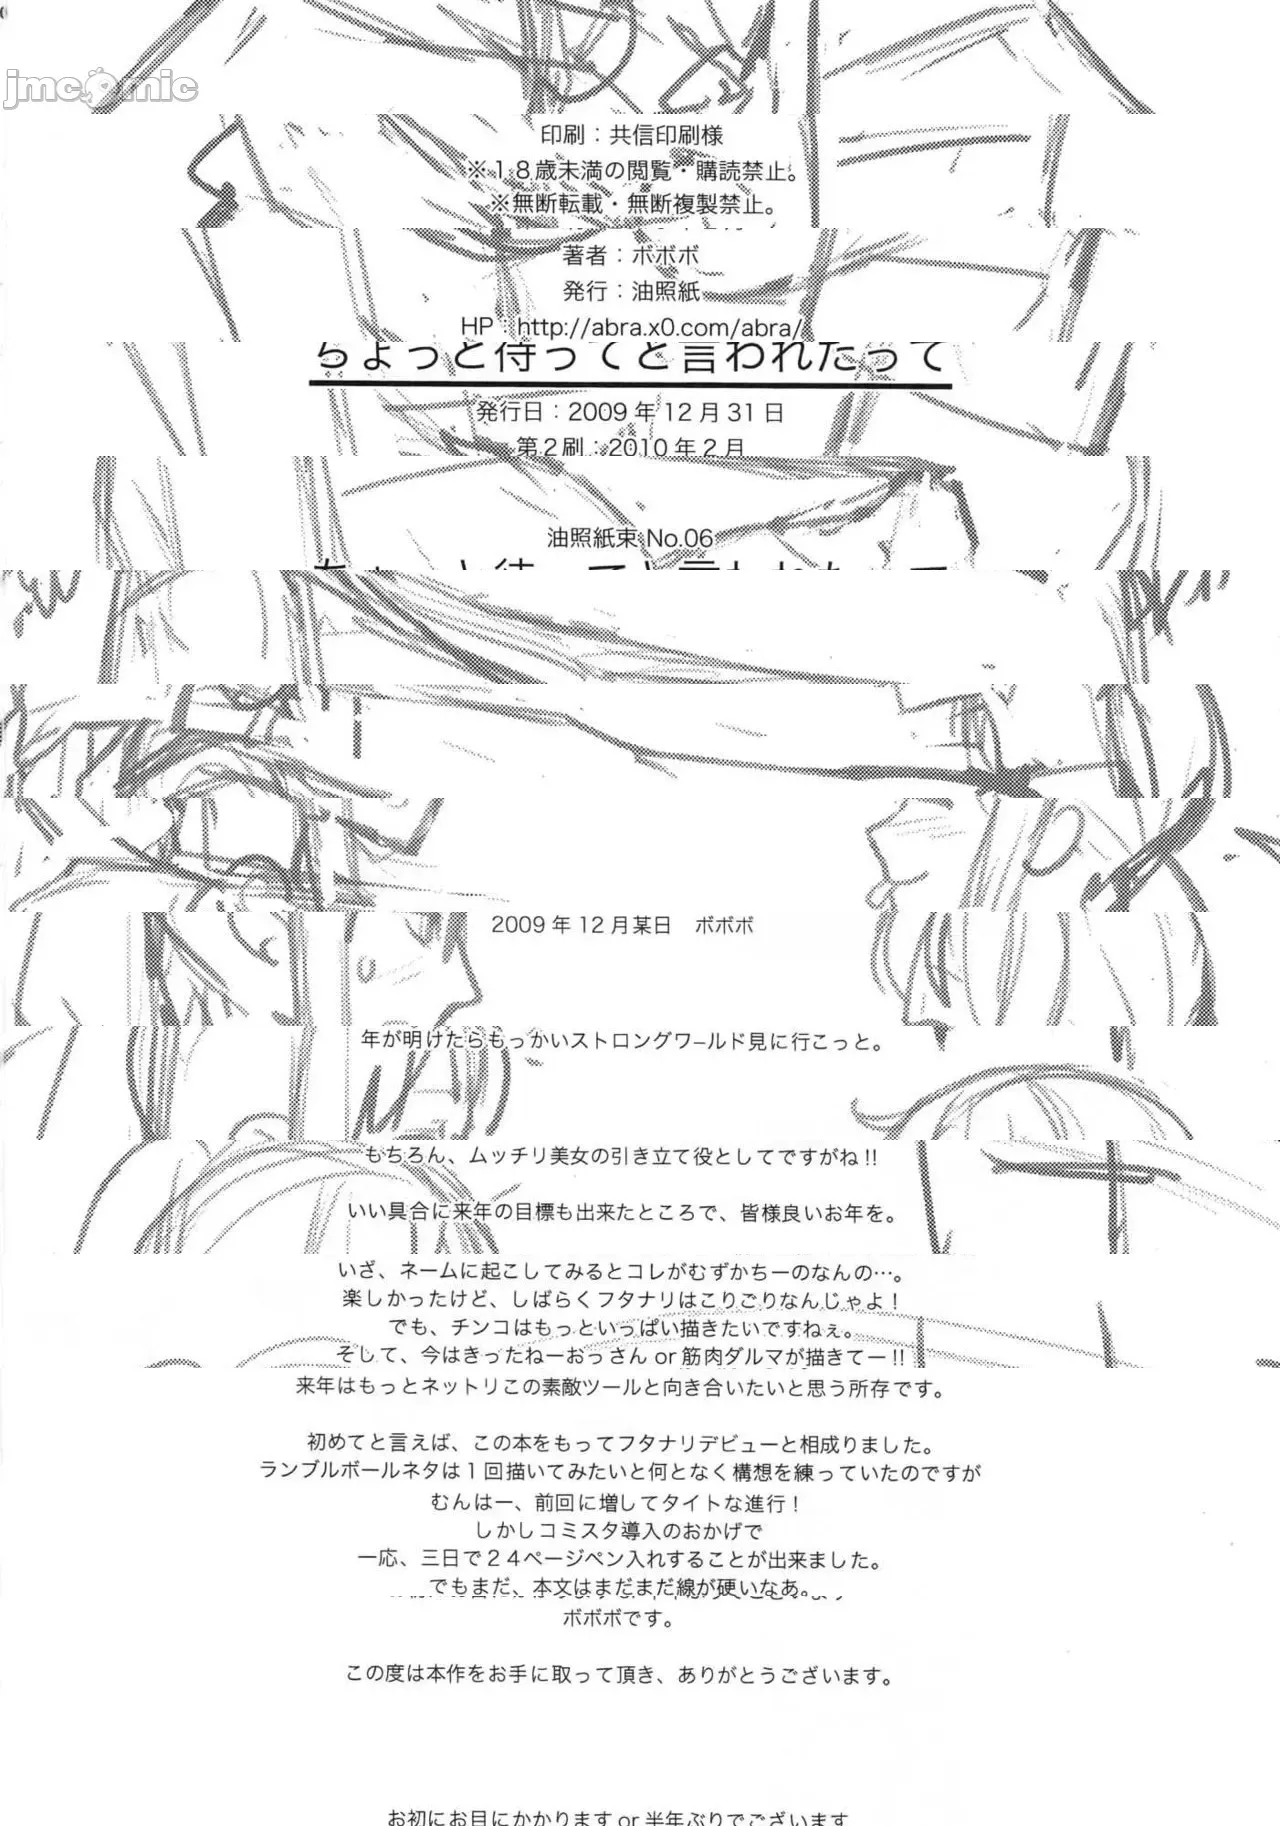 jmcomic
印刷：共信印刷様
※１８歳未満の閲覧・購読禁止。
※無断転載・無断複製禁止。
著者：ボボボ
発行：油照紙
HP：http://abra.x0.com/abra/
ちょっと待ってと言われたって
発行日：2009 年 12 月 31 日
第２刷：2010 年 2 月
油照紙束 No.06
2009 年 12 月某日　ボボボ
年が明けたらもっかいストロングワールド見に行こっと。
もちろん、ムッチリ美女の引き立て役としてですがね!!
いい具合に来年の目標も出来たところで、皆様良いお年を。
いざ、ネームに起こしてみるとコレがむずかちーのなんの…。
楽しかったけど、しばらくフタナリはこりごりなんじゃよ！
でも、チンコはもっといっぱい描きたいですねぇ。
そして、今はきったねーおっさん or 筋肉ダルマが描きてー!!
来年はもっとネットリこの素敵ツールと向き合いたいと思う所存です。
初めてと言えば、この本をもってフタナリデビューと相成りました。
ランブルボールネタは１回描いてみたいと何となく構想を練っていたのですが
むんはー、前回に増してタイトな進行！
しかしコミスタ導入のおかげで
一応、三日で２４ページペン入れすることが出来ました。
でもまだ、本文はまだまだ線が硬いなあ。
ボボボです。
この度は本作をお手に取って頂き、ありがとうございます。
お初にお目にかかります or 半年ぶりでございます